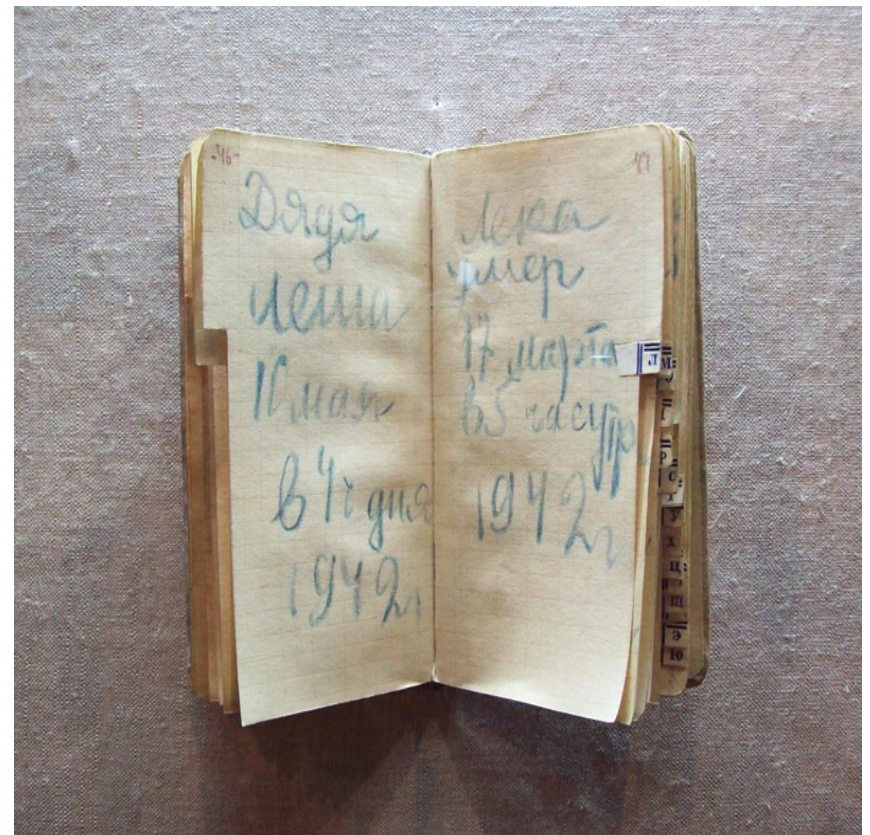 -46-
Дядя
Леша
10 мая
в 4ч дня
1942г
47
Лека
умер
17 марта
в5 часутр
1942г
Л
М
Р
С
Т
У
Х
Ц
Ш
Э
Ю